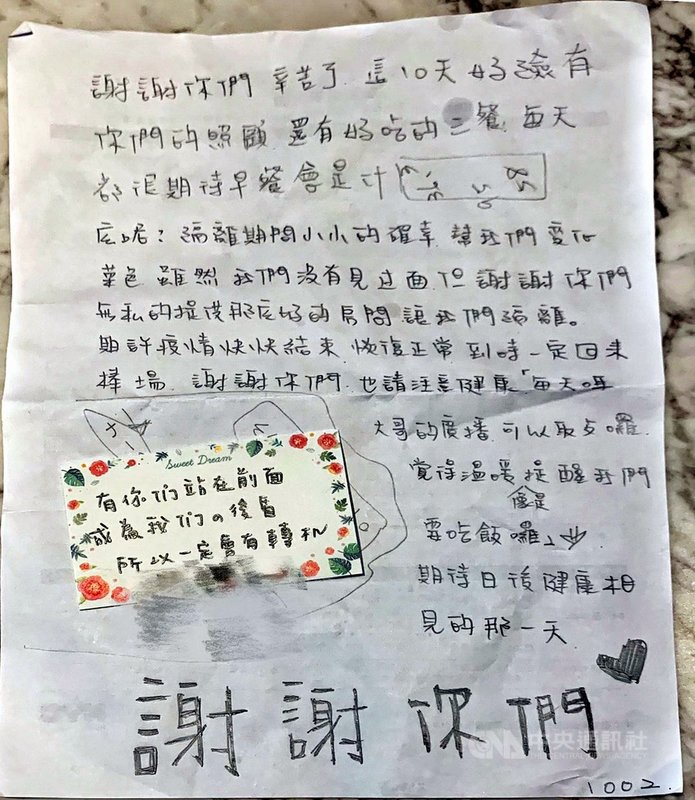 謝謝你們 辛苦了 這10天 好險有
你們的照顧 還有好吃的三餐 每天
都很期待早餐會是什
底呢？隔離期間小小的確幸 幫我們變化
菜色 雖然 我們沒有見过面 但 謝謝你們
無私的提供那底好的房間讓我們隔離。
期許疫情快快結束 恢復正常 到時一定回來
捧場 謝謝你們 也請注意健康「每天
大哥的廣播 可以取点囉
覺得溫暖提醒我們
像是
要吃飯囉」
期待日後健康相
見的那一天
Sweet Dream
有你們站在前面
成為我們の後盾
所以一定會有轉機
謝謝你們
CNA 中央通訊社
THE CENTRAL NEWS AGENCY
1002